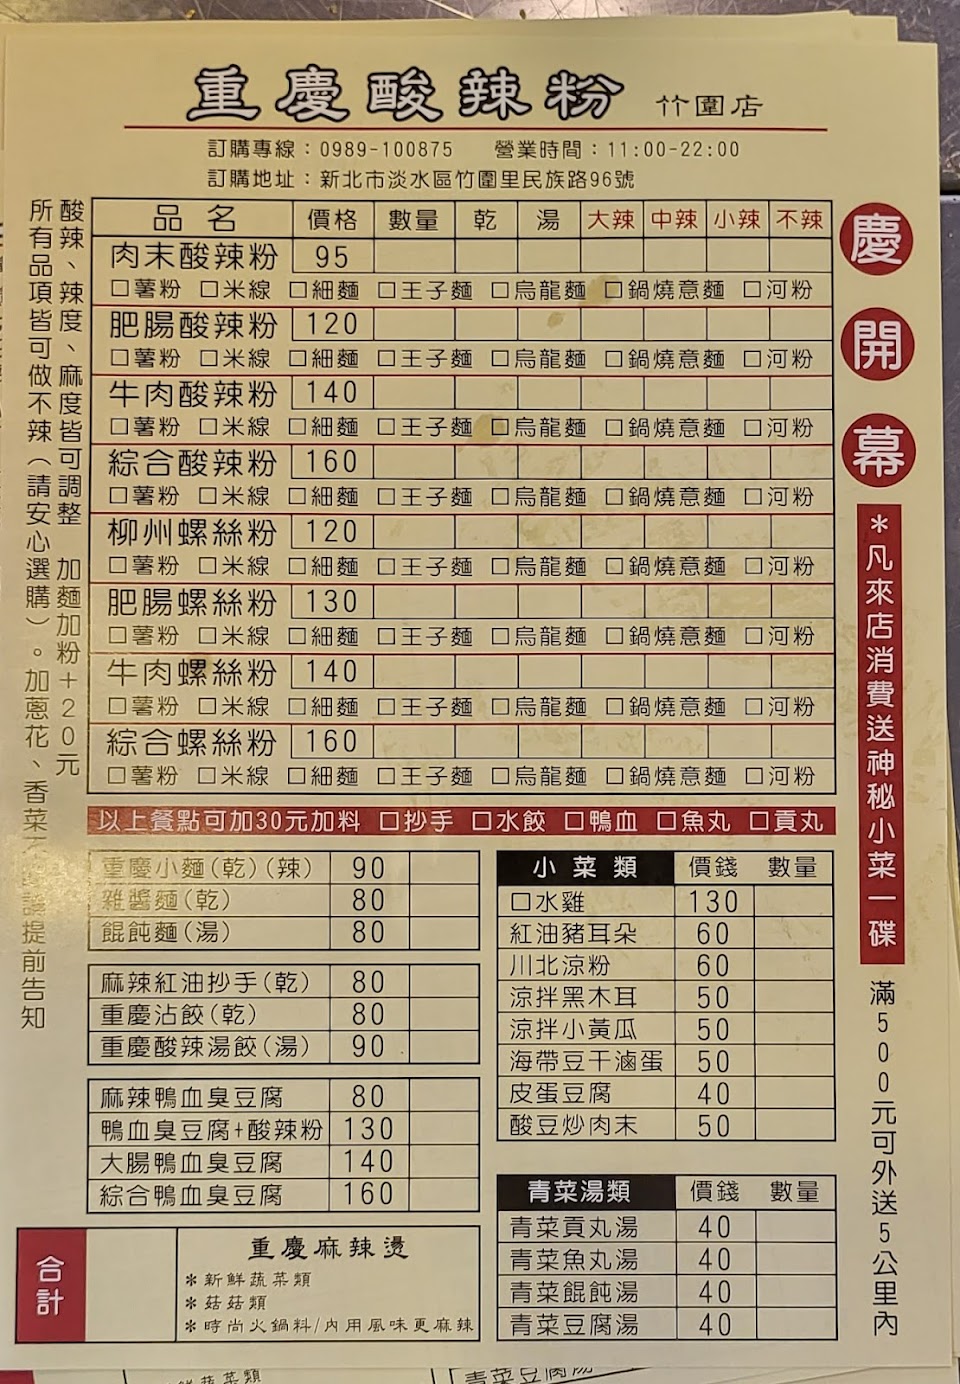 重慶酸辣粉 竹圍店
訂購專線：0989-100875 營業時間：11:00-22:00
訂購地址：新北市淡水區竹圍里民族路96號
酸辣、辣度、麻度皆可調整 加麵加粉+20元
所有品項皆可做不辣（請安心選購）。加蔥花、香菜
提前告知
品名 價格 數量 乾 湯 大辣 中辣 小辣 不辣
肉末酸辣粉 95
口薯粉 口米線 口細麵 口王子麵 口烏龍麵 口鍋燒意麵 口河粉
肥腸酸辣粉 120
口薯粉 口米線 口細麵 口王子麵 口烏龍麵 口鍋燒意麵 口河粉
牛肉酸辣粉 140
口薯粉 口米線 口細麵 口王子麵 口烏龍麵 口鍋燒意麵 口河粉
綜合酸辣粉 160
口薯粉 口米線 口細麵 口王子麵 口烏龍麵 口鍋燒意麵 口河粉
柳州螺絲粉 120
口薯粉 口米線 口細麵 口王子麵 口烏龍麵 口鍋燒意麵 口河粉
肥腸螺絲粉 130
口薯粉 口米線 口細麵 口王子麵 口烏龍麵 口鍋燒意麵 口河粉
牛肉螺絲粉 140
口薯粉 口米線 口細麵 口王子麵 口烏龍麵 口鍋燒意麵 口河粉
綜合螺絲粉 160
口薯粉 口米線 口細麵 口王子麵 口烏龍麵 口鍋燒意麵 口河粉
以上餐點可加30元加料 口抄手 口水餃 口鴨血 口魚丸 口貢丸
重慶小麵(乾)(辣) 90
雜醬麵(乾) 80
餛飩麵(湯) 80
麻辣紅油抄手(乾) 80
重慶沾餃(乾) 80
重慶酸辣湯餃(湯) 90
麻辣鴨血臭豆腐 80
鴨血臭豆腐+酸辣粉 130
大腸鴨血臭豆腐 140
綜合鴨血臭豆腐 160
小菜類 價錢 數量
口水雞 130
紅油豬耳朵 60
川北涼粉 60
涼拌黑木耳 50
涼拌小黃瓜 50
海帶豆干滷蛋 50
皮蛋豆腐 40
酸豆炒肉末 50
青菜湯類 價錢 數量
青菜貢丸湯 40
青菜魚丸湯 40
青菜餛飩湯 40
青菜豆腐湯 40
合計
重慶麻辣燙
*新鮮蔬菜類
*菇菇類
*時尚火鍋料/內用風味更麻辣
慶開幕
*凡來店消費送神秘小菜一碟
滿500元可外送5公里內
鮮蔬菜類
青菜豆腐湯